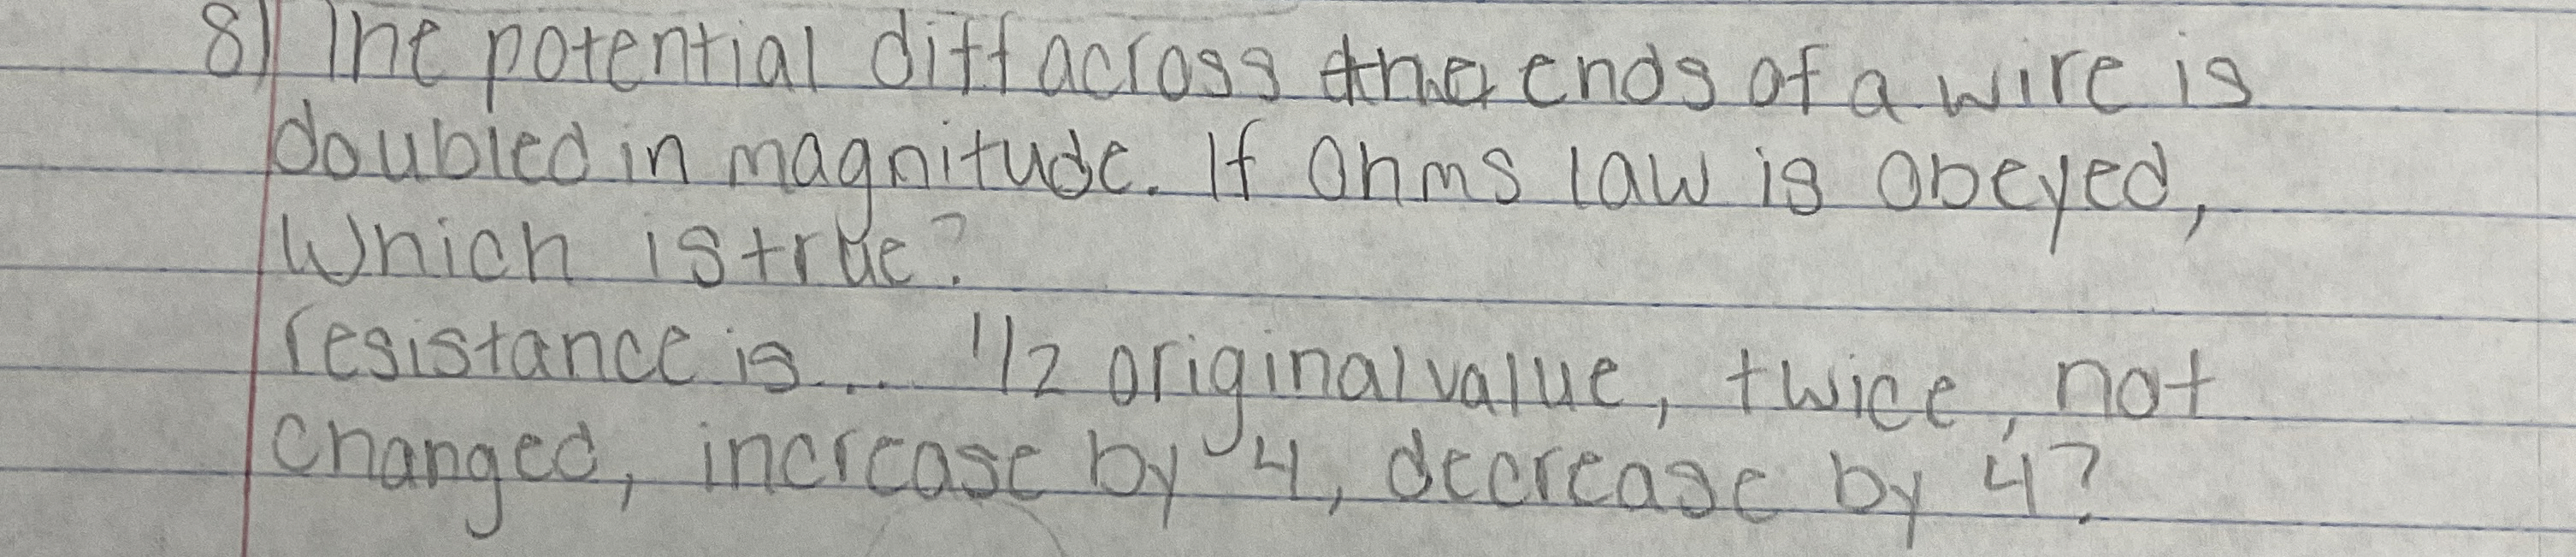 8) The potential diff across the ends of a wire is
doubled in magnitude. If Ohms law is obeyed,
Which is true?
resistance is... 1/2 original value, twice, not
changed, increase by 4, decrease by 4?